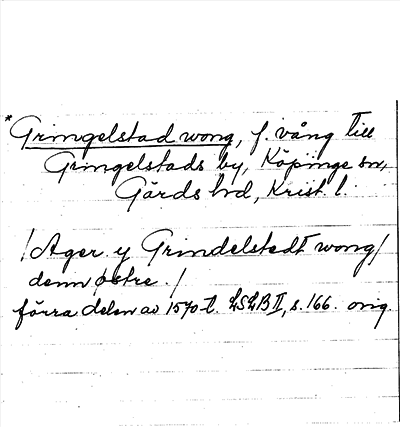 *Gringelstad wong, f. vång till
Gringelstads by, Köpinge sn,
Gärds hd, Krist. l.
/Ager y Grindelstedt wong/
denn østre./
förra delen av 1570-t. LSLB II, s. 166. orig.